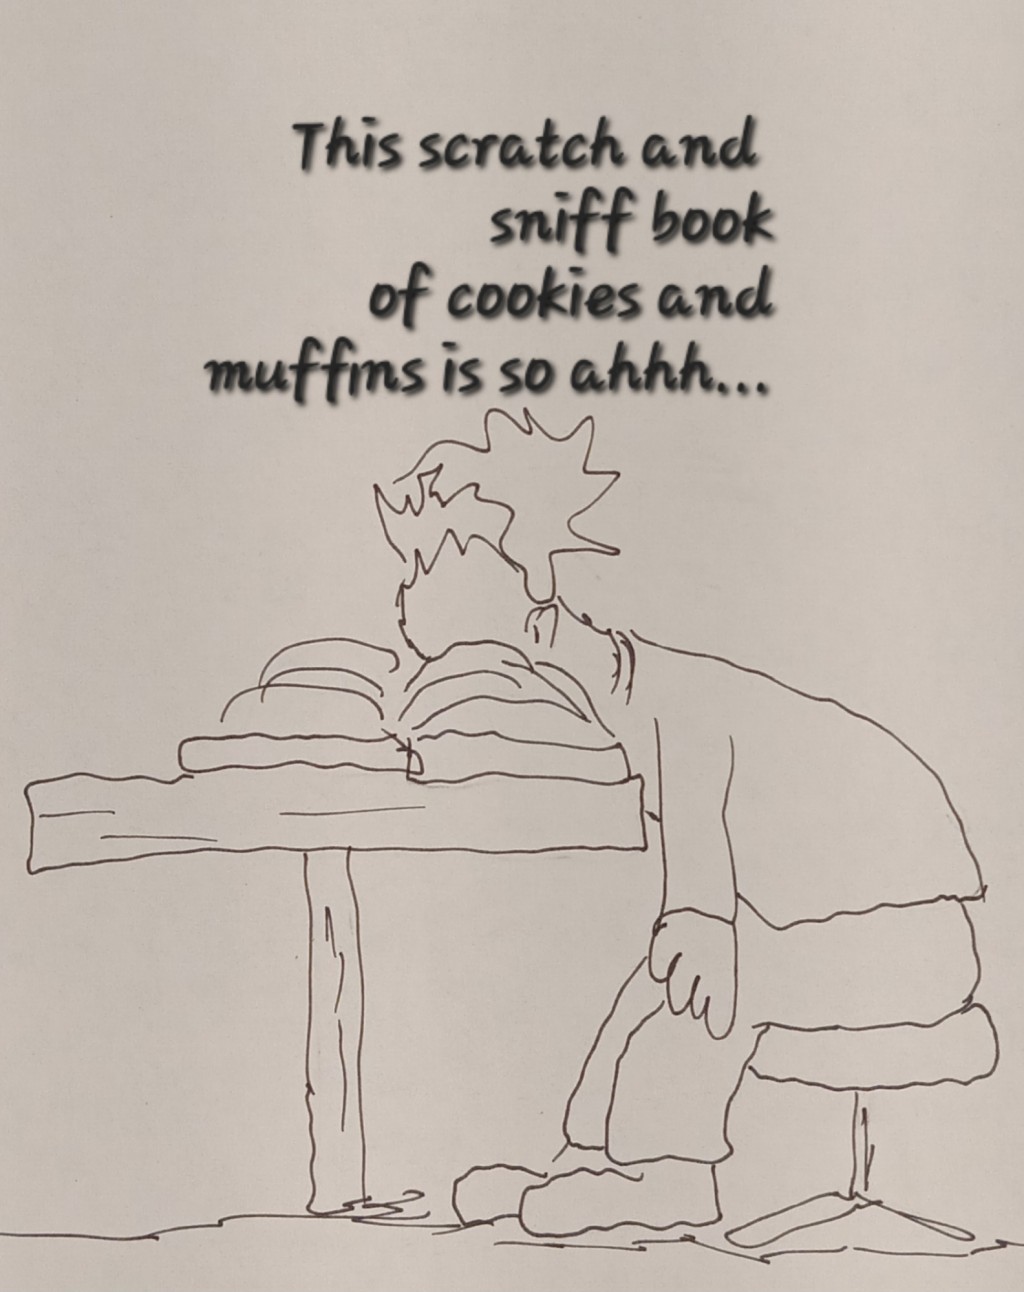 This scratch and
sniff book
of cookies and
muffins is so ahhh...